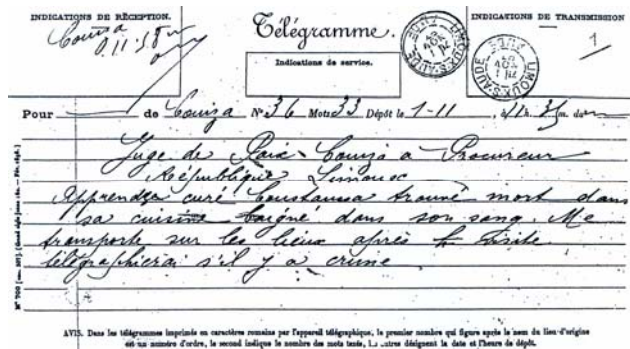 INDICATIONS DE RÉCEPTION.
Couiza
Télégramme.
Indications de service.
INDICATIONS DE TRANSMISSION
1
LIMOUX-AUDE
LIMOUX-AUDE
Pour de Couiza N° 36 Mots 33 Dépôt le 1-11, à 11 h. 35 m. du m
Juge de Paix Couiza a Procureur
République Limoux
Apprends curé Coustaussa trouvé mort dans
sa cuisine baigné dans son sang. Me
transporte sur les lieux après visite
télégraphierai s'il y a crime
N° 700
AVIS. Dans les télégrammes imprimés en caractères romains par l'appareil télégraphique, le premier nombre qui figure après le nom du lieu d'origine
est un numéro d'ordre, le second indique le nombre des mots taxés, les autres désignent la date et l'heure de dépôt.